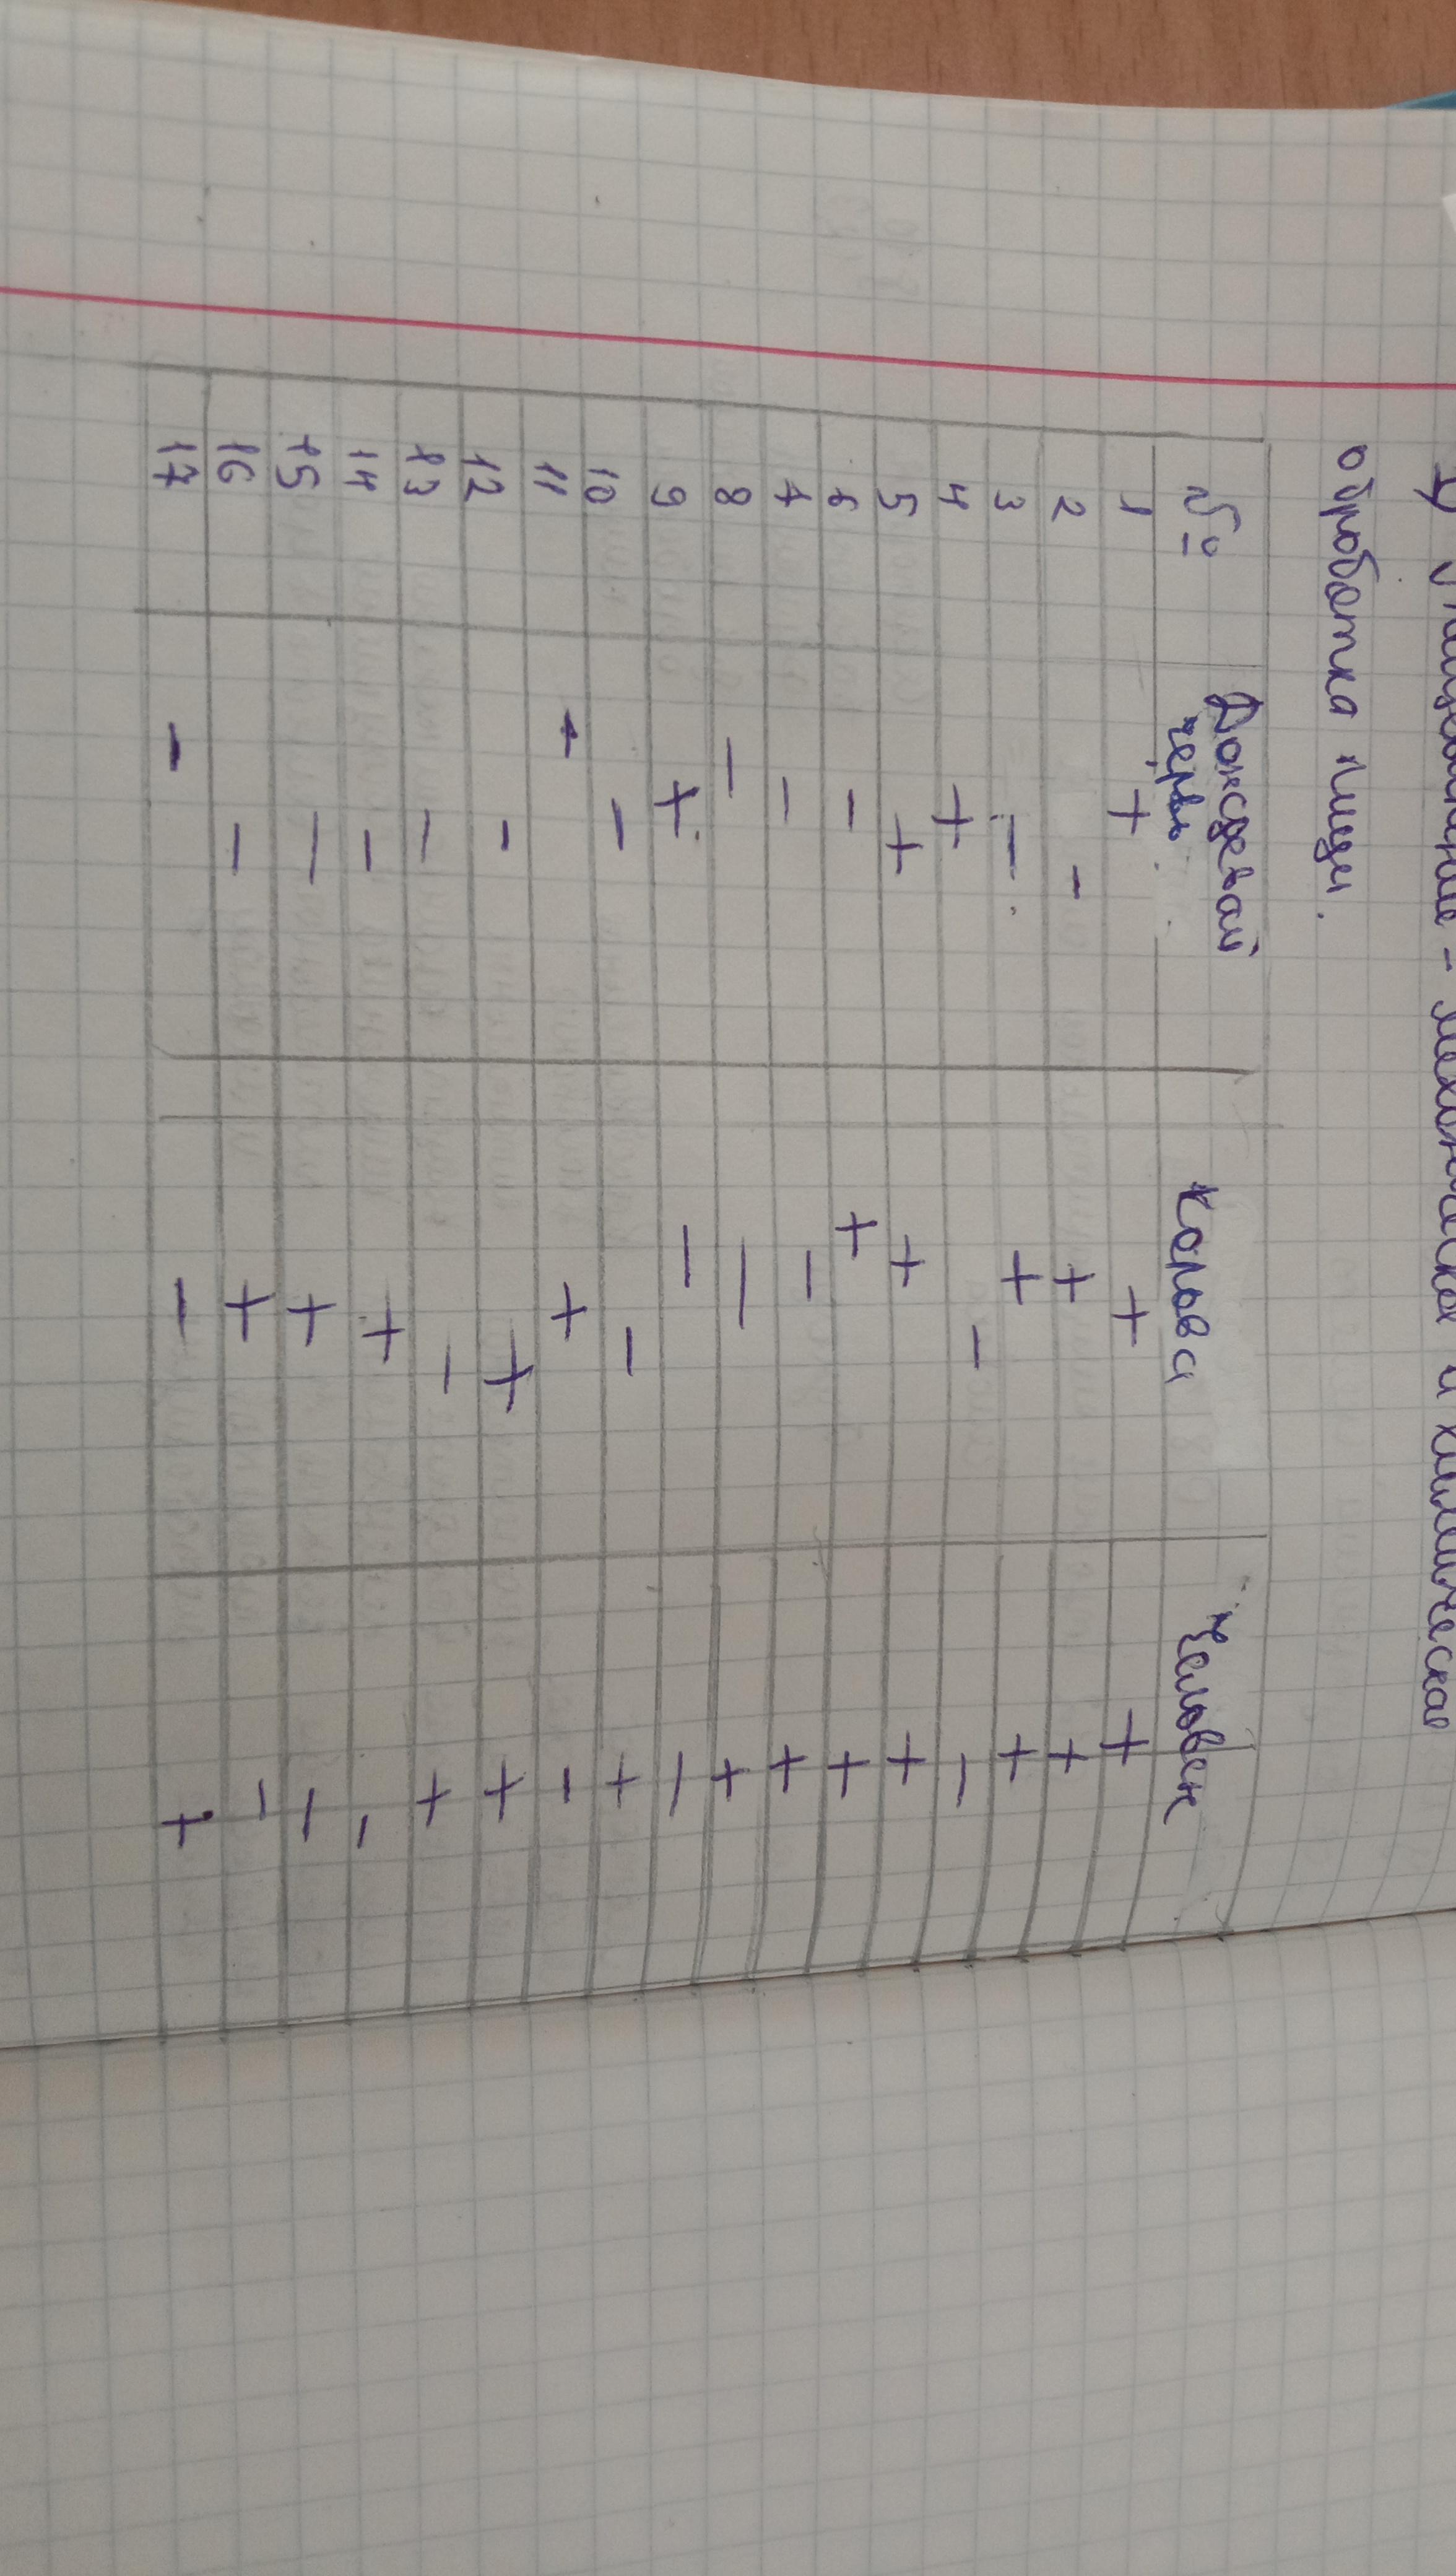 Пищеварение - механическое и химическое
обработка пищи.
№ Дождевой червь Корова Человек
1 + + +
2 - + +
3 - + +
4 + - -
5 + + +
6 - + +
7 - - +
8 - - +
9 + - -
10 - - +
11 - + -
12 - + +
13 - - +
14 - + -
15 - + -
16 - + -
17 - - +